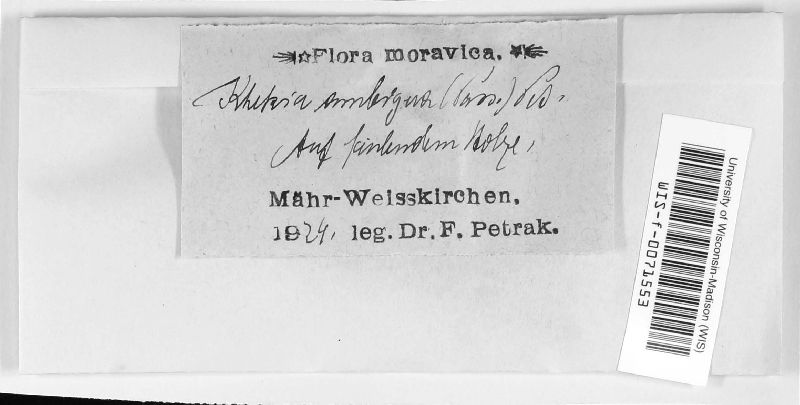 Flora moravica.
Khekia ambigua (Pass.)
Auf faulendem Holze,
Mähr-Weisskirchen.
1924, leg. Dr. F. Petrak.
University of Wisconsin-Madison (WIS)
WIS-f-0071553